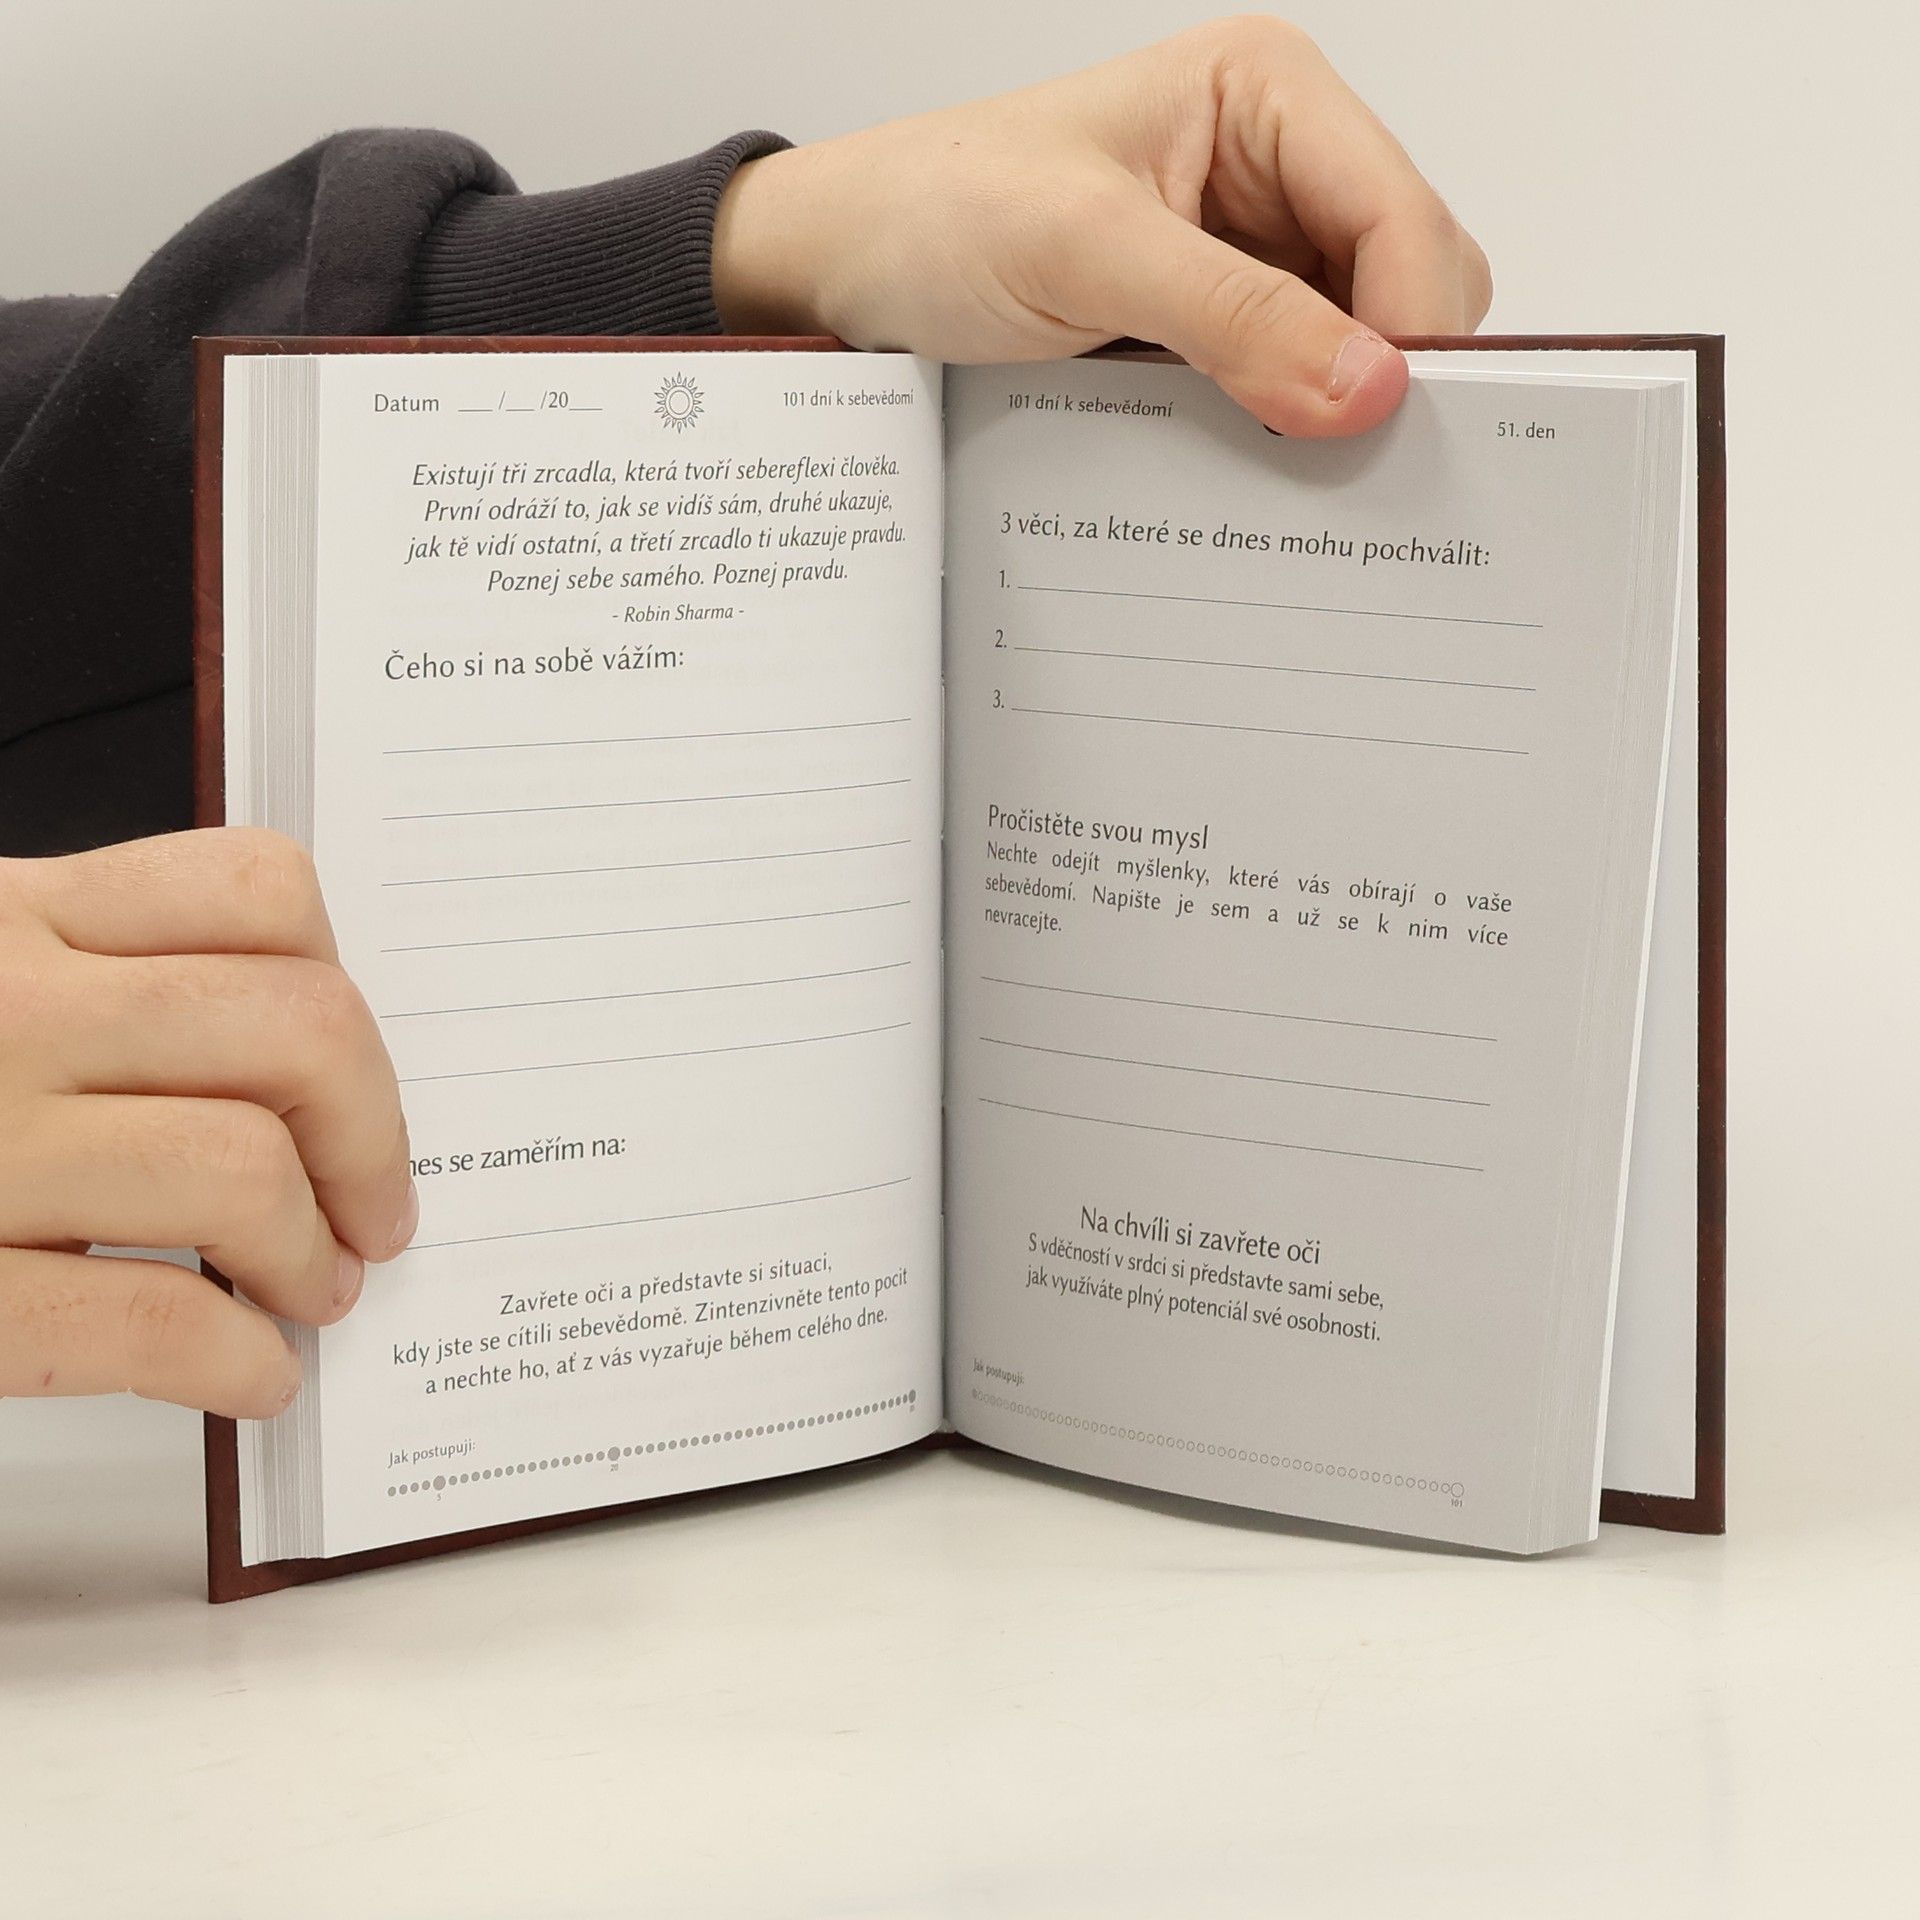 Datum ___ /___ /20___
101 dní k sebevědomí
Existují tři zrcadla, která tvoří sebereflexi člověka.
První odráží to, jak se vidíš sám, druhé ukazuje,
jak tě vidí ostatní, a třetí zrcadlo ti ukazuje pravdu.
Poznej sebe samého. Poznej pravdu.
- Robin Sharma -
Čeho si na sobě vážím:
se zaměřím na:
Zavřete oči a představte si situaci,
kdy jste se cítili sebevědomě. Zintenzivněte tento pocit
a nechte ho, ať z vás vyzařuje během celého dne.
Jak postupuji:
5
20
101 dní k sebevědomí
51. den
3 věci, za které se dnes mohu pochválit:
1.
2.
3.
Pročistěte svou mysl
Nechte odejít myšlenky, které vás obírají o vaše
sebevědomí. Napište je sem a už se k nim více
nevracejte.
Na chvíli si zavřete oči
S vděčností v srdci si představte sami sebe,
jak využíváte plný potenciál své osobnosti.
Jak postupuji:
101